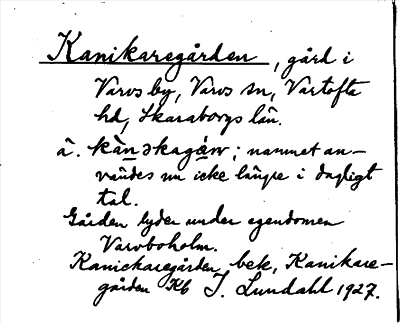 Kanikaregården, gård i
Varvs by, Varvs sn, Vartofta
hd, Skaraborgs län.
ä. kànəkagáɷ; namnet an-
vändes nu icke längre i dagligt
tal.
Gården lyder under egendomen
Varvboholm.
Kanickaregården bek, Kanikare-
gården Kb I. Lundahl 1927.